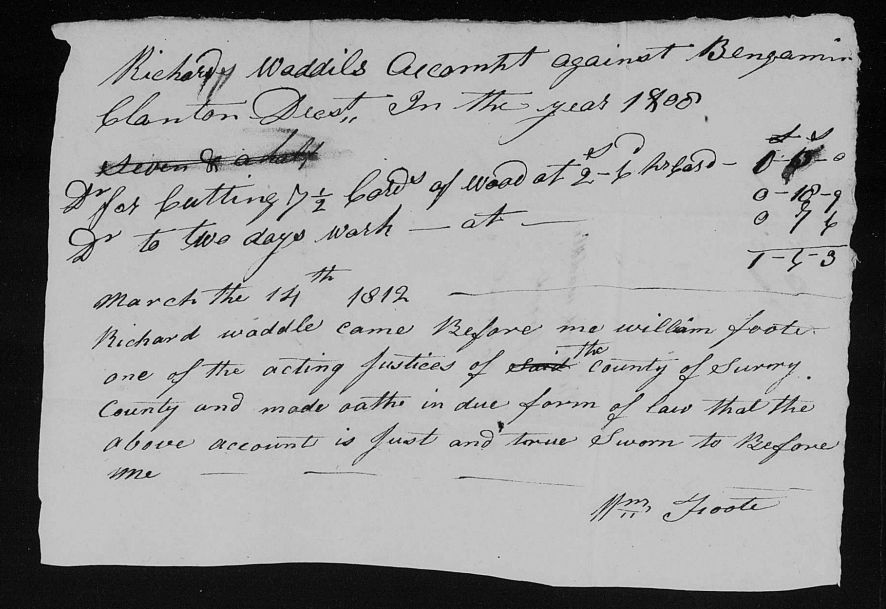 Richard Waddils Accompt against Bengamin
Clanton Decst,, In the year 1808
Seven & a half
£ s
0 - 0
Dr for Cutting 7 1/2 Cords of wood at 2s-6d pr Cord - 0 - 18 - 9
Dr to two days work - at - 0 7 6
1 - 6 - 3
March the 14th 1812
Richard waddle came Before me william foote
one of the acting Justices of said the County of Surry
County and made oathe in due form of law that the
above account is Just and true Sworn to Before
me
Wm Foote